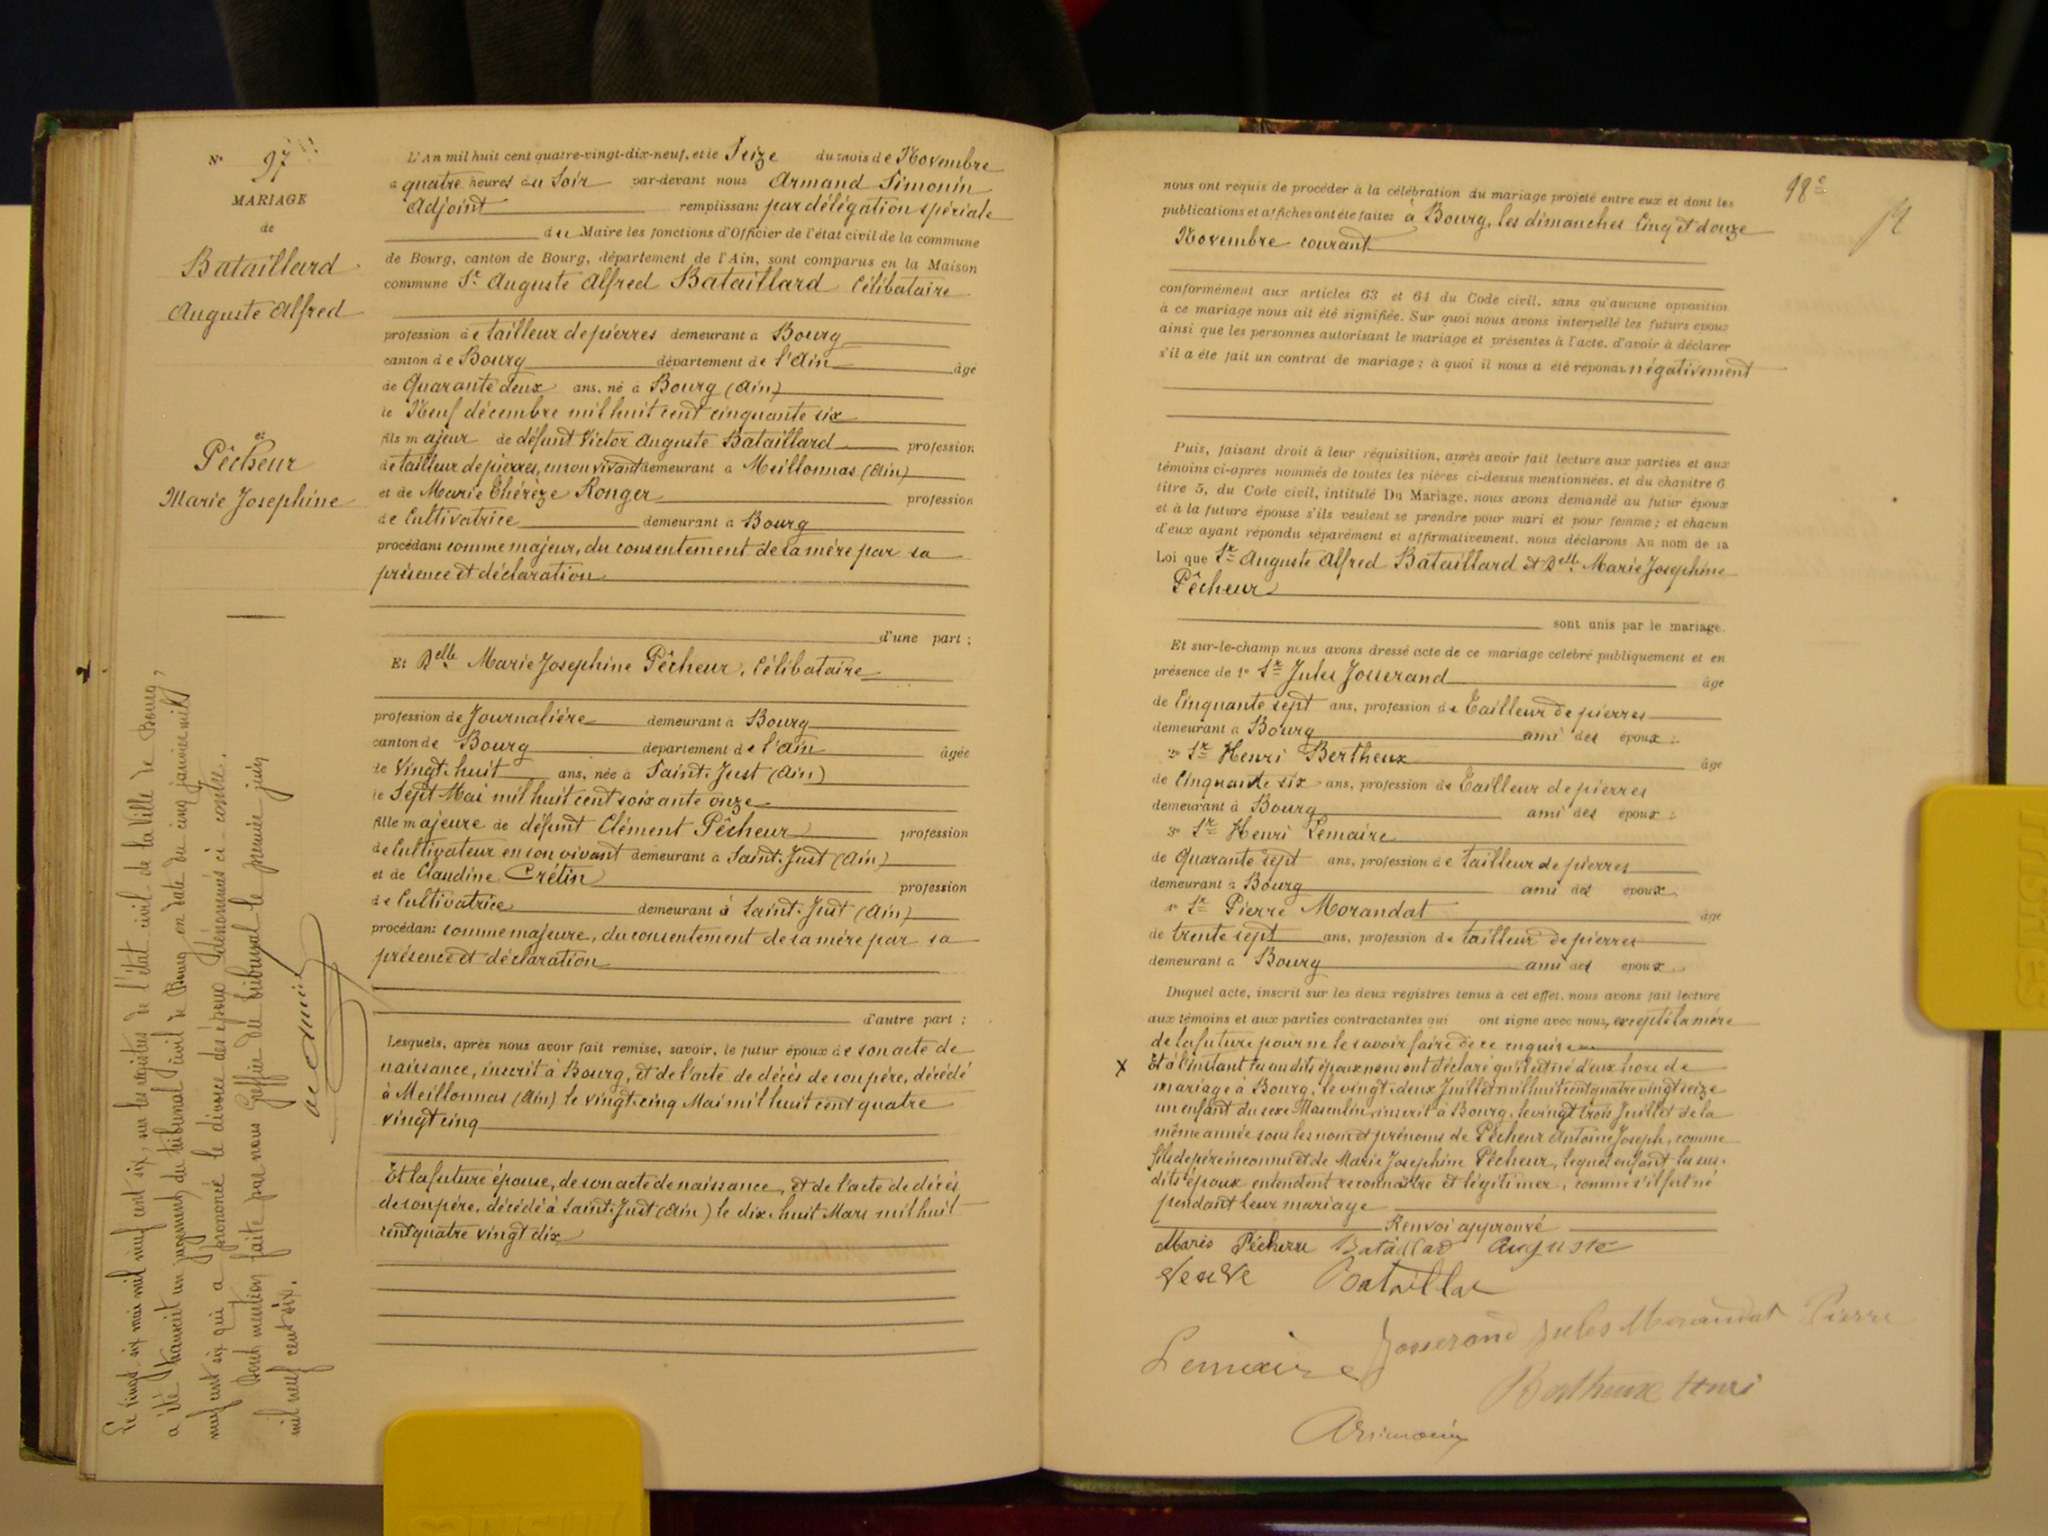 N° 97
MARIAGE
de
Bataillard
Auguste Alfred
et
Pêcheur
Marie Josephine
Le vingt six mai mil neuf cent six, sur les registres de l'état civil de la Ville de Bourg,
a été transcrit un jugement du tribunal civil de Bourg en date du cinq janvier mil
neuf cent six qui a prononcé le divorce des époux dénommés ci-contre.
Dont mention faite par nous Greffier du tribunal le premier juin
mil neuf cent six.
L'An mil huit cent quatre-vingt-dix-neuf, et le Seize du mois de Novembre
à quatre heures du Soir par-devant nous Armand Simonin
Adjoint remplissant par délégation spéciale
du Maire les fonctions d'Officier de l'état civil de la commune
de Bourg, canton de Bourg, département de l'Ain, sont comparus en la Maison
commune Sr Auguste Alfred Bataillard Célibataire
profession de tailleur de pierres demeurant à Bourg
canton de Bourg département de l'Ain âgé
de Quarante deux ans, né à Bourg (Ain)
le Neuf décembre mil huit cent cinquante six
fils majeur de défunt Victor Auguste Bataillard profession
de tailleur de pierres, en son vivant demeurant à Meillonnas (Ain)
et de Marie Thérèze Ronger profession
de Cultivatrice demeurant à Bourg
procédant comme majeur, du consentement de sa mère par sa
présence et déclaration
d'une part ;
Et Delle Marie Josephine Pêcheur, Célibataire
profession de Journalière demeurant à Bourg
canton de Bourg département de l'Ain âgée
de Vingt-huit ans, née à Saint-Just (Ain)
le Sept Mai mil huit cent soixante onze
fille majeure de défunt Clément Pêcheur profession
de Cultivateur en son vivant demeurant à Saint-Just (Ain)
et de Claudine Crétin profession
de Cultivatrice demeurant à Saint-Just (Ain)
procédant comme majeure, du consentement de sa mère par sa
présence et déclaration
d'autre part ;
Lesquels, après nous avoir fait remise, savoir, le futur époux de son acte de
naissance, inscrit à Bourg, et de l'acte de décès de son père, décédé
à Meillonnas (Ain) le vingt-cinq Mai mil huit cent quatre
vingt cinq
Et la future épouse, de son acte de naissance, et de l'acte de décès
de son père, décédé à Saint-Just (Ain) le dix-huit Mars mil huit
cent quatre vingt dix
98e
nous ont requis de procéder à la célébration du mariage projeté entre eux et dont les
publications et affiches ont été faites à Bourg, les dimanches Cinq et douze
Novembre courant
conformément aux articles 63 et 64 du Code civil, sans qu'aucune opposition
à ce mariage nous ait été signifiée. Sur quoi nous avons interpellé les futurs époux
ainsi que les personnes autorisant le mariage et présentes à l'acte, d'avoir à déclarer
s'il a été fait un contrat de mariage ; à quoi il nous a été répondu négativement
Puis, faisant droit à leur réquisition, après avoir fait lecture aux parties et aux
témoins ci-après nommés de toutes les pièces ci-dessus mentionnées, et du chapitre 6
titre 5, du Code civil, intitulé Du Mariage, nous avons demandé au futur époux
et à la future épouse s'ils veulent se prendre pour mari et pour femme ; et chacun
d'eux ayant répondu séparément et affirmativement, nous déclarons Au nom de la
Loi que Sr Auguste Alfred Bataillard et Delle Marie Josephine
Pêcheur
sont unis par le mariage.
Et sur-le-champ nous avons dressé acte de ce mariage célébré publiquement et en
présence de 1° Sr Jules Josserand âgé
de Cinquante sept ans, profession de Tailleur de pierres
demeurant à Bourg ami des époux ;
2° Sr Henri Bertheux âgé
de Cinquante six ans, profession de Tailleur de pierres
demeurant à Bourg ami des époux ;
3° Sr Henri Lemaire
de Quarante sept ans, profession de tailleur de pierres
demeurant à Bourg ami des époux
4° Sr Pierre Morandat âgé
de trente sept ans, profession de tailleur de pierres
demeurant à Bourg ami des époux.
Duquel acte, inscrit sur les deux registres tenus à cet effet, nous avons fait lecture
aux témoins et aux parties contractantes qui ont signé avec nous, excepté la mère
de la future pour ne le savoir faire de ce enquise
X Et à l'instant les susdits époux nous ont déclaré qu'il est né d'eux hors de
mariage à Bourg, le vingt-deux Juillet mil huit cent quatre vingt seize
un enfant du sexe Masculin, inscrit à Bourg, le vingt trois Juillet de la
même année sous les nom et prénoms de Pêcheur Antoine Joseph, comme
fils de père inconnu et de Marie Josephine Pêcheur, lequel enfant les sus-
dits époux entendent reconnaître et légitimer, comme s'il fut né
pendant leur mariage
Renvoi approuvé
Marie Pêcheur Bataillard Auguste
Veuve Bataillar
Lemaire Josserand Jules Morandat Pierre
Bertheux Henri
ASimonin